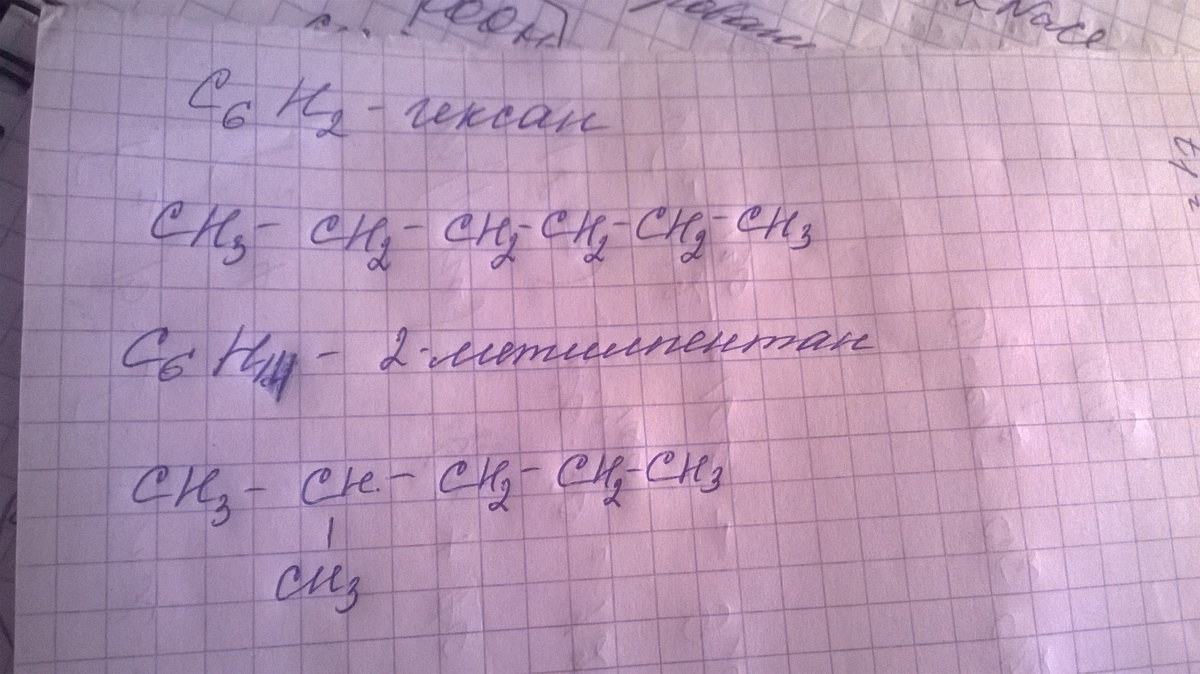 и NaCl
C6 H2 - гексан
CH3 - CH2 - CH2 - CH2 - CH2 - CH3
C6 H14 - 2-метилпентан
CH3 - CH - CH2 - CH2 - CH3
|
CH3